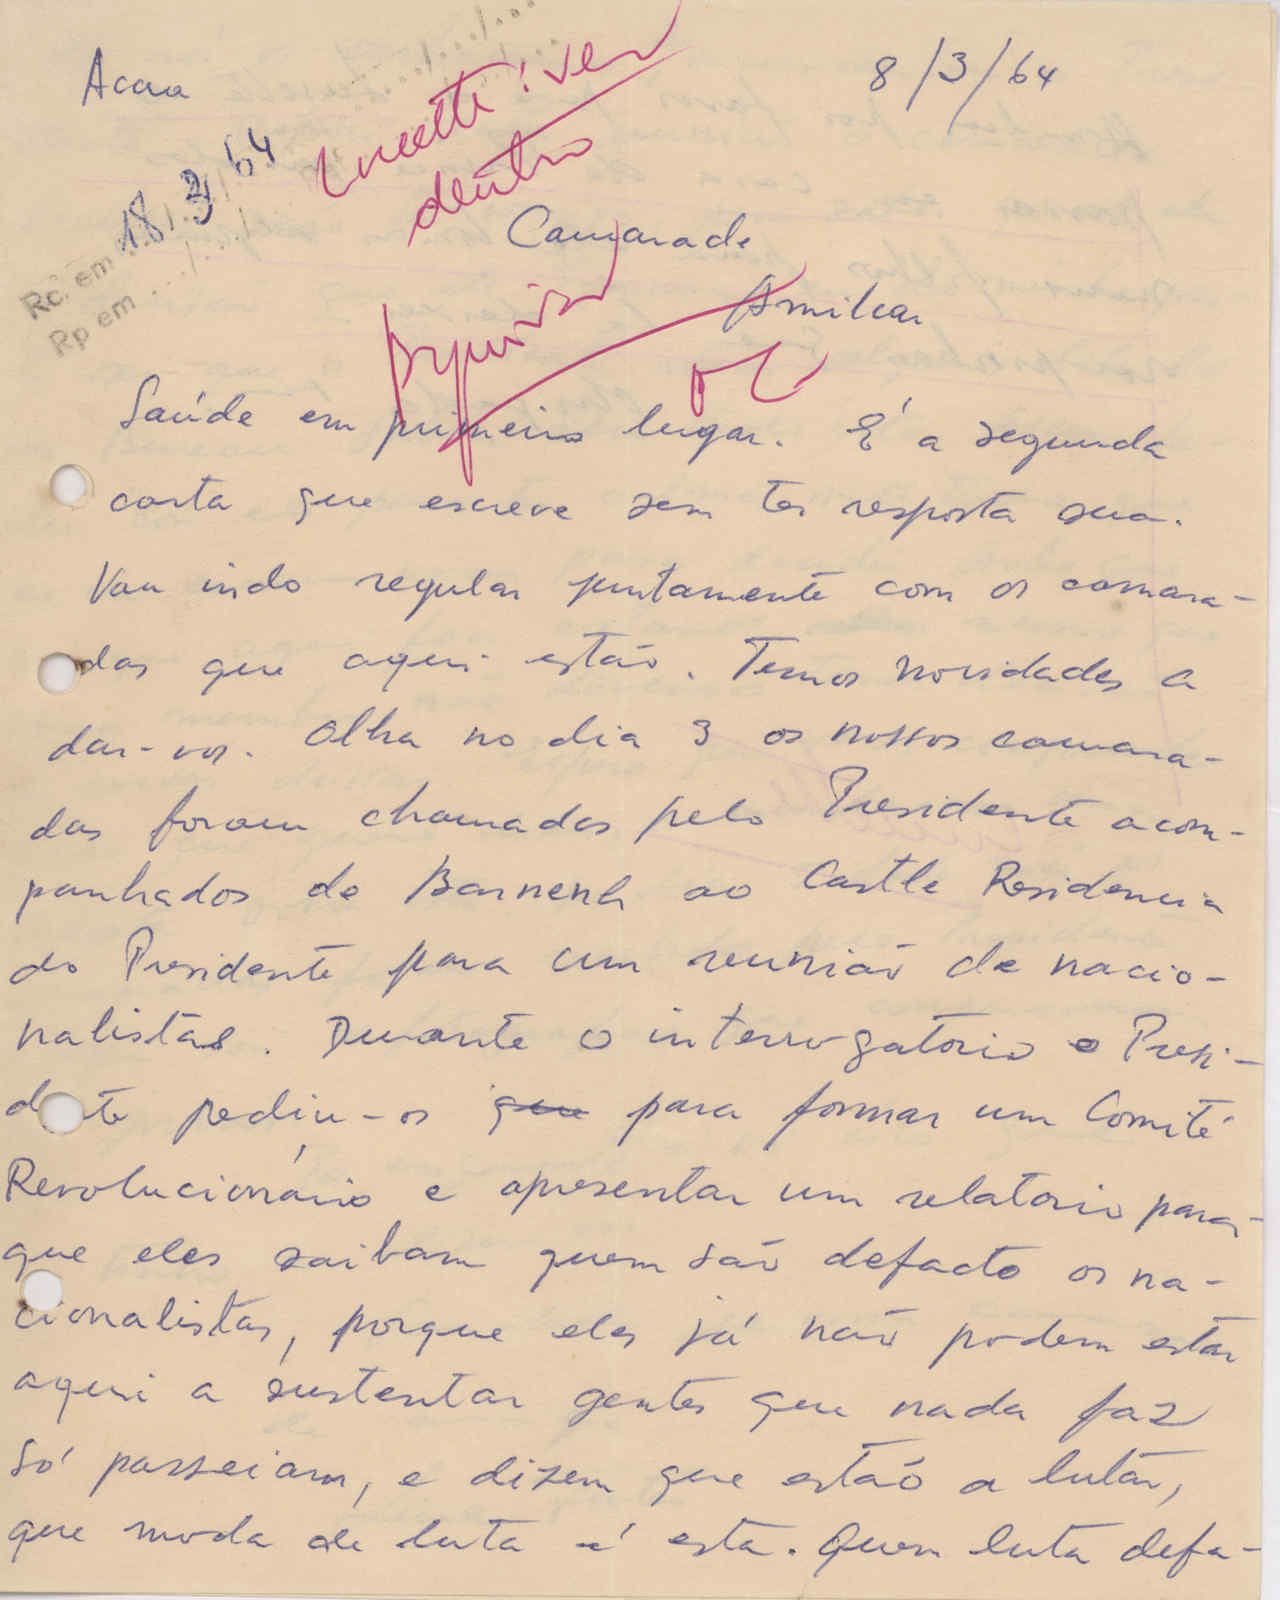 Accra
8/3/64
Lucette: ver
dentro
18 3 64
Rc. em
Rp em
Camarade
Amilcar
Arquivar
Saúde em primeiro lugar. É a segunda
carta que escreve sem ter resposta sua.
Vou indo regular juntamente com os camara-
das que aqui estão. Temos novidades a
dar-vos. Olha no dia 3 os nossos camara-
das foram chamados pelo Presidente acom-
panhados de Barnenh ao Castle Residencia
do Presidente para um reunião de nacio-
nalistas. Durante o interrogatorio o Presi-
dente pediu-os que para formar um Comité
Revolucionário e apresentar um relatorio para
que eles saibam quem são defacto os na-
cionalistas, porque eles já não podem estar
aqui a sustentar gentes que nada faz
só passeiam, e dizem que estão a lutar,
que moda de luta é esta. Quem luta defa-